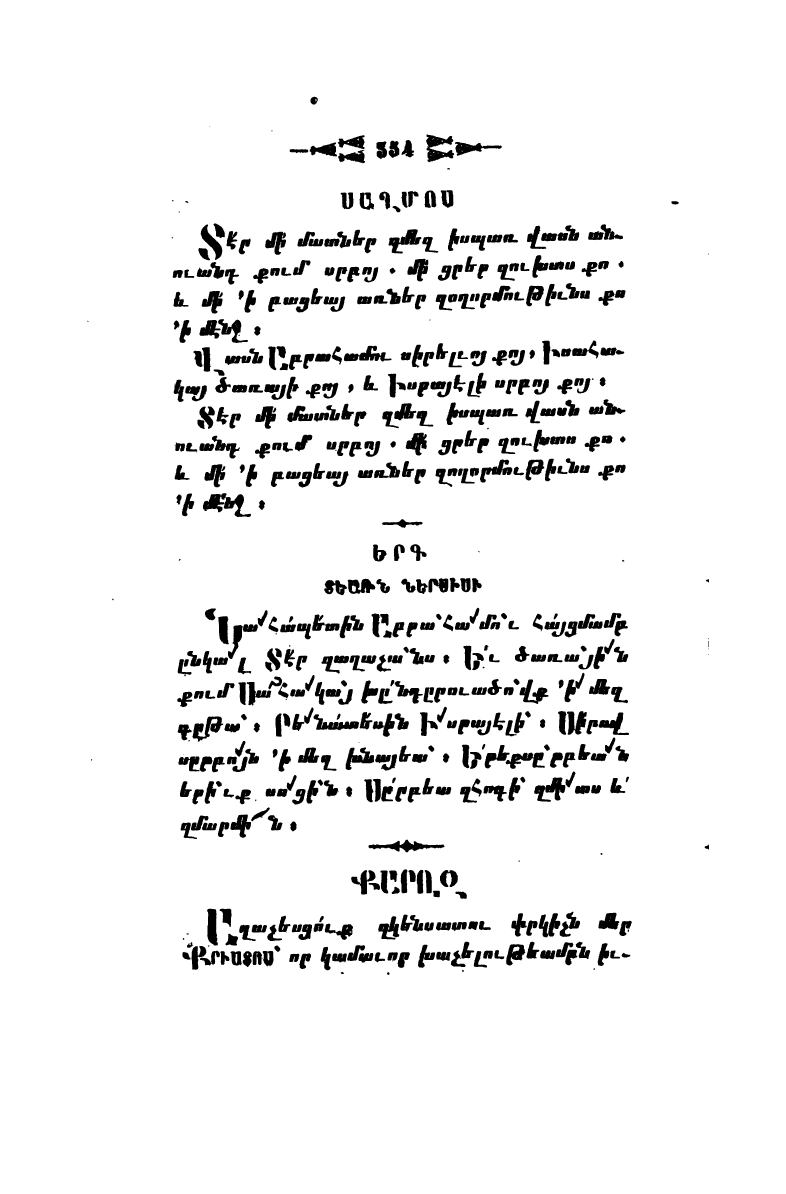 354
ՍԱՂՄՈՍ
Տէր մի մատներ զմեզ իսպառ վասն ան֊
ուանդ քում սրբոյ . մի ցրեր զուխտս քո .
և մի ՚ի բացեայ առներ զողորմութիւնս քո
՚ի մէնջ ։
Վասն Աբրահամու սիրելւոյ քոյ, Իսահա֊
կայ ծառայի քոյ , և Իսրայէլի սրբոյ քոյ ։
Տէր մի մատներ զմեզ իսպառ վասն ան֊
ուանդ քում սրբոյ . մի ցրեր զուխտս քո .
և մի ՚ի բացեայ առներ զողորմութիւնս քո
՚ի մէնջ ։
ԵՐԳ
ՏԵԱՌՆ ՆԵՐՍԻՍԻ
Նահապետին Աբրահամու հայցմամբ
ընկալ Տէր զաղաչանս ։ Եւ ծառային
քում Սահակայ խընդըրուածովք ՚ի մեզ
գըթա ։ Բենատեսին Իսրայէլի ։ Սիրով
սըրբոյն ՚ի մեզ խնայեա ։ Երեքսըրբեան
երիւք սացին ։ Սըրբեա զհոգի զմիտս և
զմարմին ։
ՔԱՐՈԶ
Աղաչեսցուք զկենսատու փրկիչն մեր
ՔՐԻՍՏՈՍ՝ որ կամաւոր խաչելութեամբն իւ֊